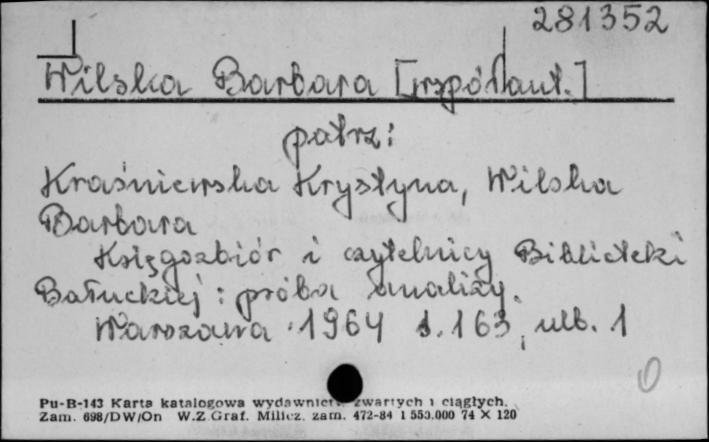 281352
Wilska Barbara [współaut.]
patrz:
Kraśniewska Krystyna, Wilska
Barbara
Księgozbiór i czytelnicy Biblioteki
Bałuckiej : próba analizy.
Warszawa 1964 s. 163, nlb. 1
Pu-B-143 Karta katalogowa wydawnictw zwartych i ciągłych.
Zam. 698/DW/On W.Z Graf. Milicz. zam. 472-84 1 550.000 74 X 120